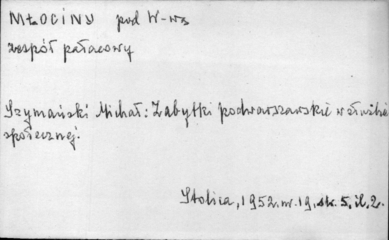 MŁOCINY pod W-wą
zespół pałacowy
Szymański Michał: Zabytki podwarszawskie w służbie
społecznej.
Stolica, 1952. nr. 19. str. 5, il. 2.